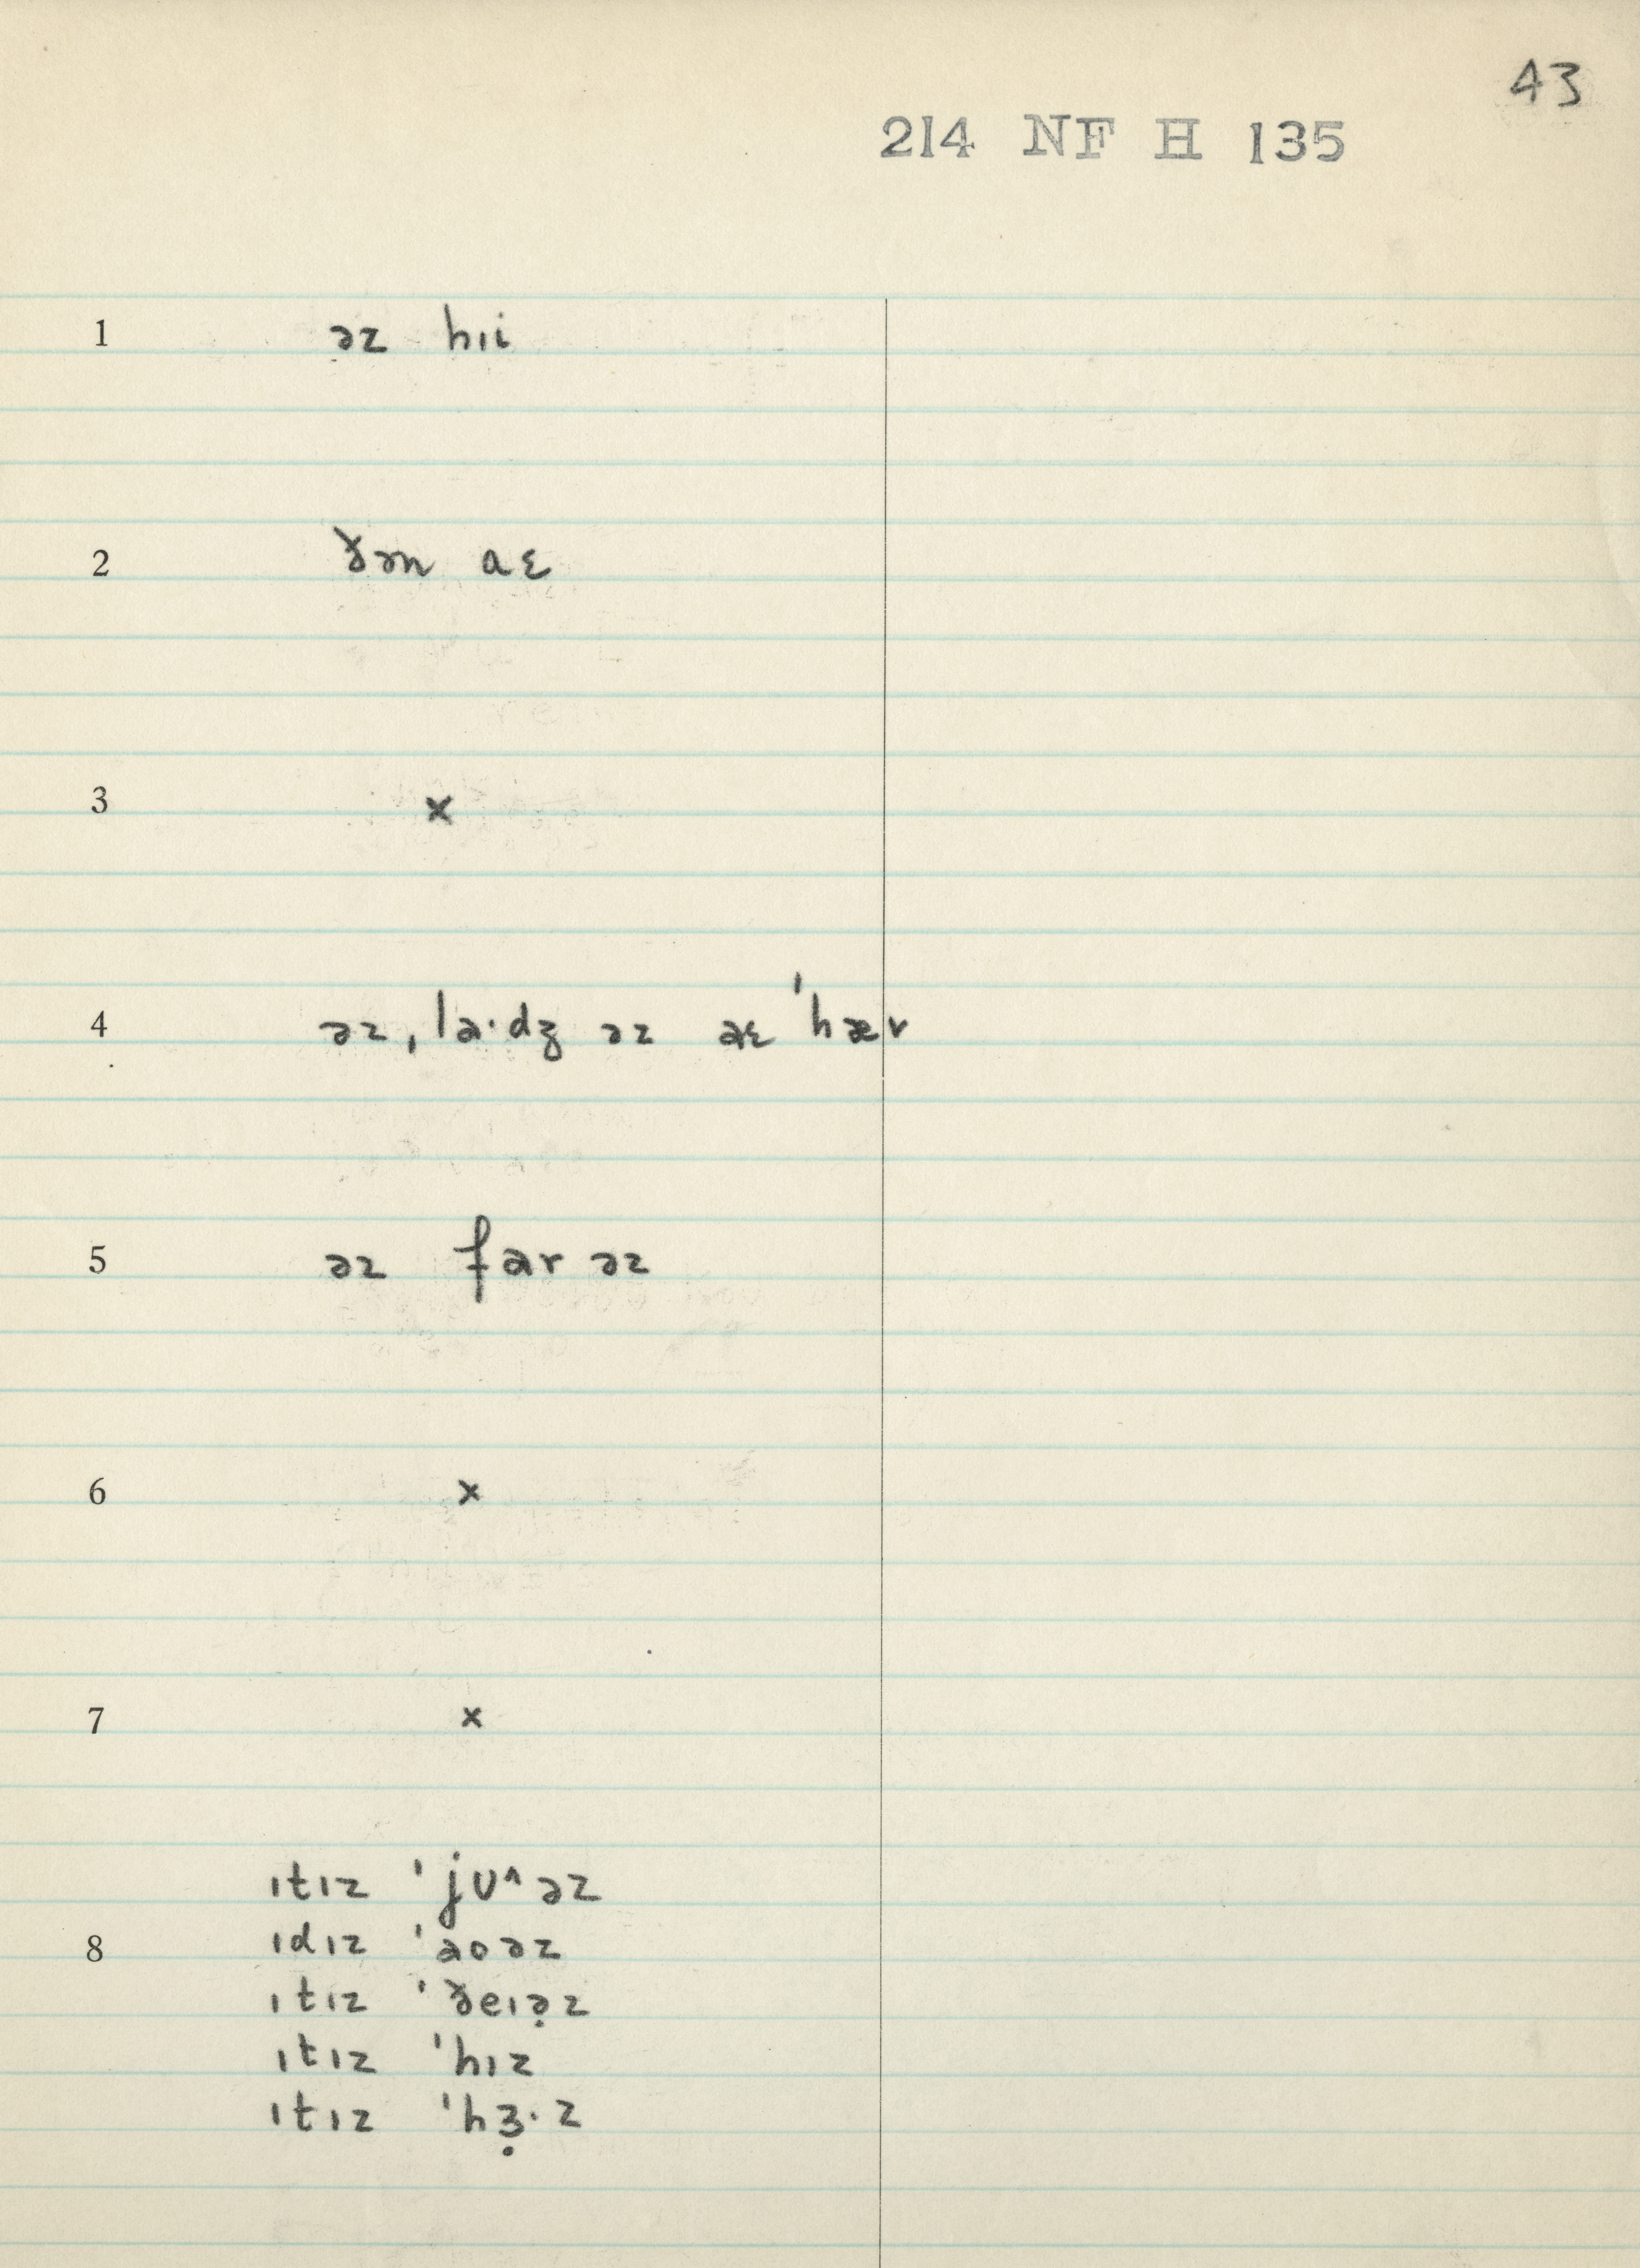 43
214 NF H 135
1 əz hɪi
2 ðən aɛ
3 x
4 əz ˌla·dʒ əz æɛ ˈhæv
5 əz far əz
6 x
7 x
ɪtɪz ˈjʊ^əz
8 ɪdɪz ˈaoəz
ɪtɪz ˈðeɪə̣z
ɪtɪz ˈhɪz
ɪtɪz ˈhɜ̣·z